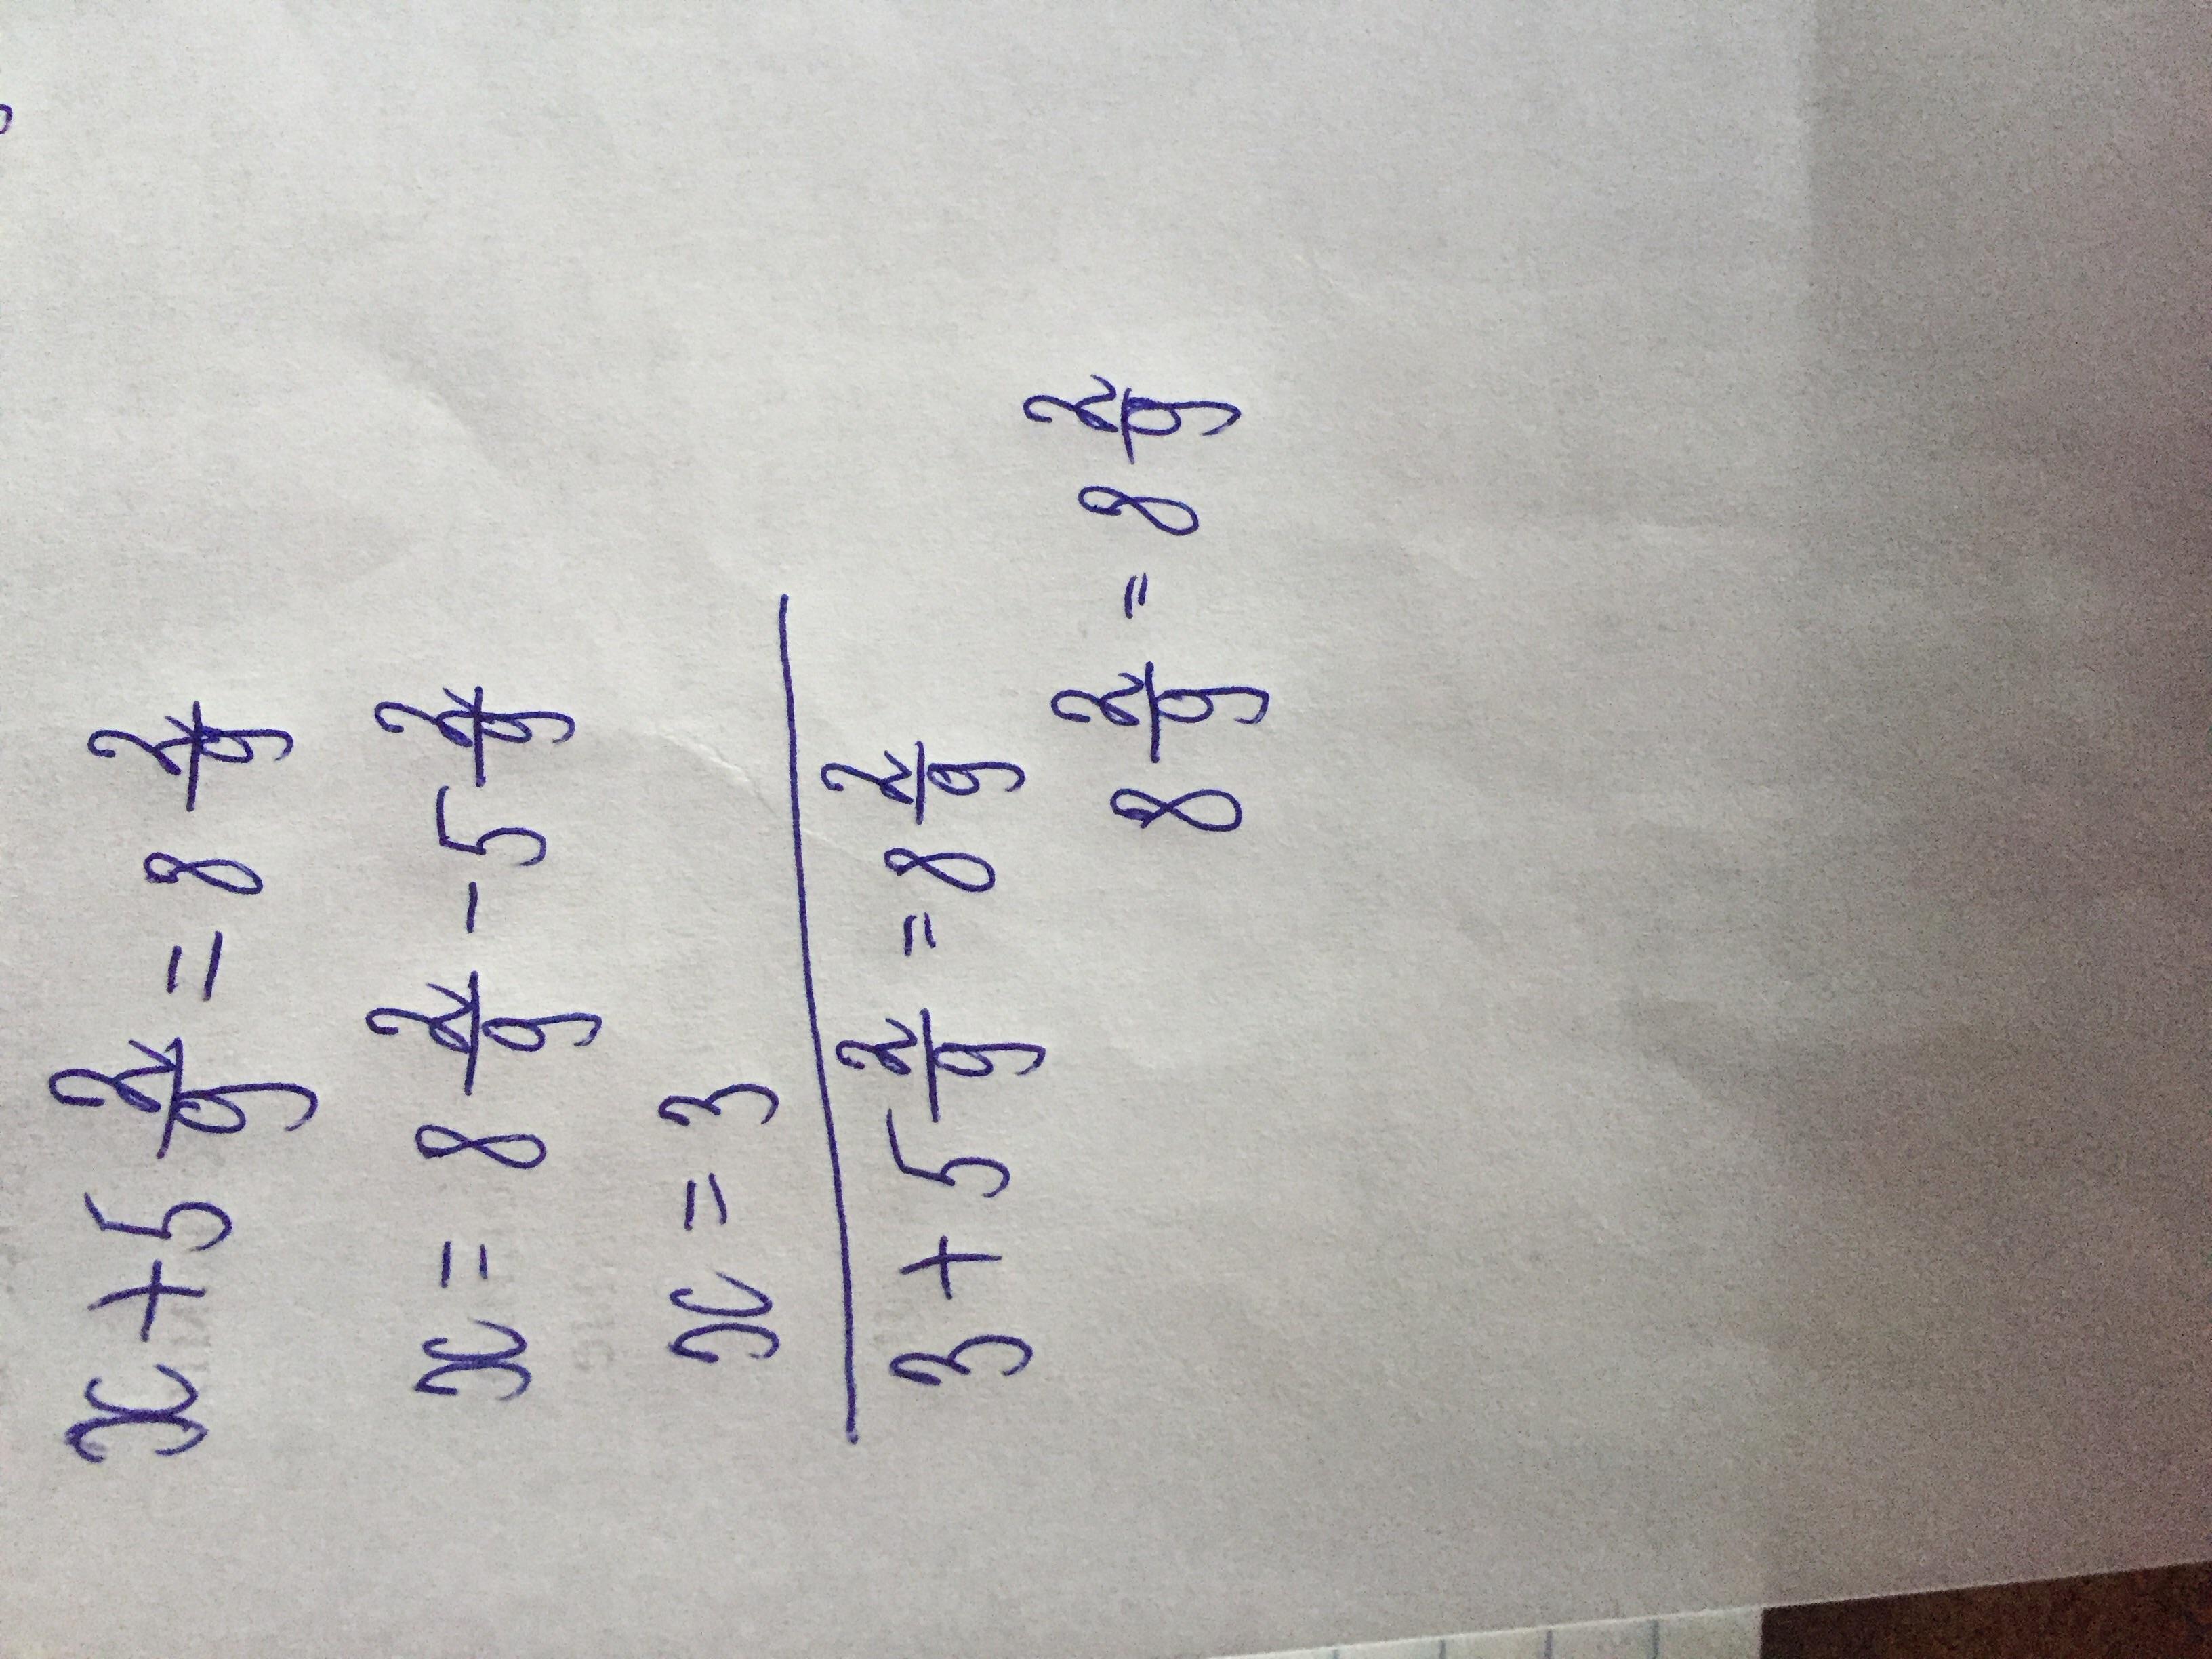 x + 5 2/9 = 8 2/9
x = 8 2/9 - 5 2/9
x = 3
3 + 5 2/9 = 8 2/9
8 2/9 = 8 2/9